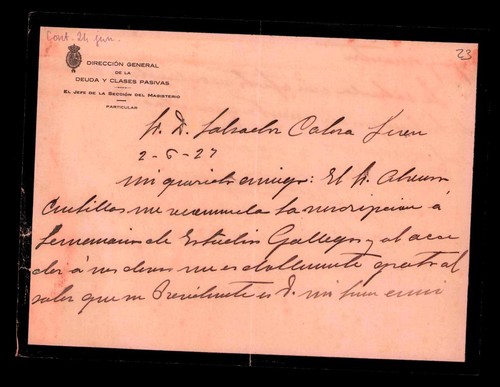 Cont. 24 jun.
23
DIRECCIÓN GENERAL
DE LA
DEUDA Y CLASES PASIVAS
EL JEFE DE LA SECCIÓN DEL MAGISTERIO
PARTICULAR
Sr. D. Salvador Cabeza
2-6-27
Mi querido amigo: El Sr.
me la suscripcion á
Seminario de Estudios Gallegos y al
á sus deseos me es grato al
saber que su Presidente es D. mi buen